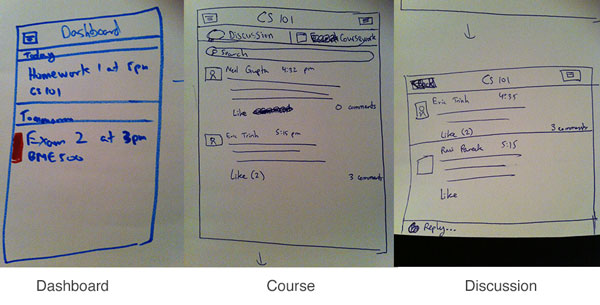 Dashboard
Today
Homework 1 at 5pm
CS101
Tomorrow
Exam 2 at 3pm
BME500
CS 101
Discussion
Coursework
Search
Neel Gupta 4:32 pm
Like
0 comments
Eric Trinh 5:15 pm
Like (2)
3 comments
CS 101
Eric Trinh 4:35
Like (2)
3 comments
Ravi Parekh 5:15
Like
Reply...
Dashboard
Course
Discussion